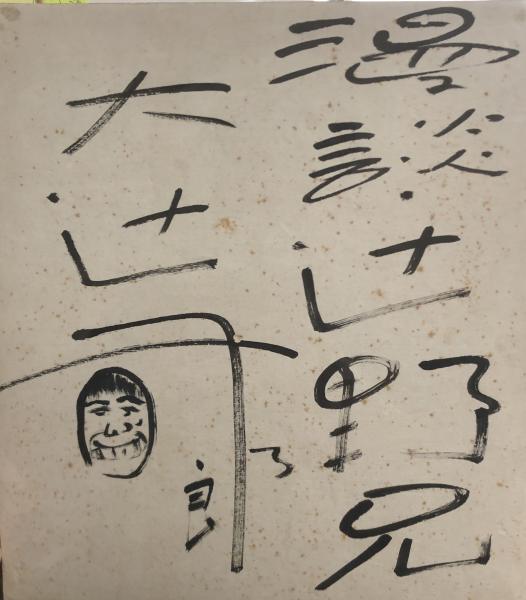 漫談辻野兄
大辻司郎